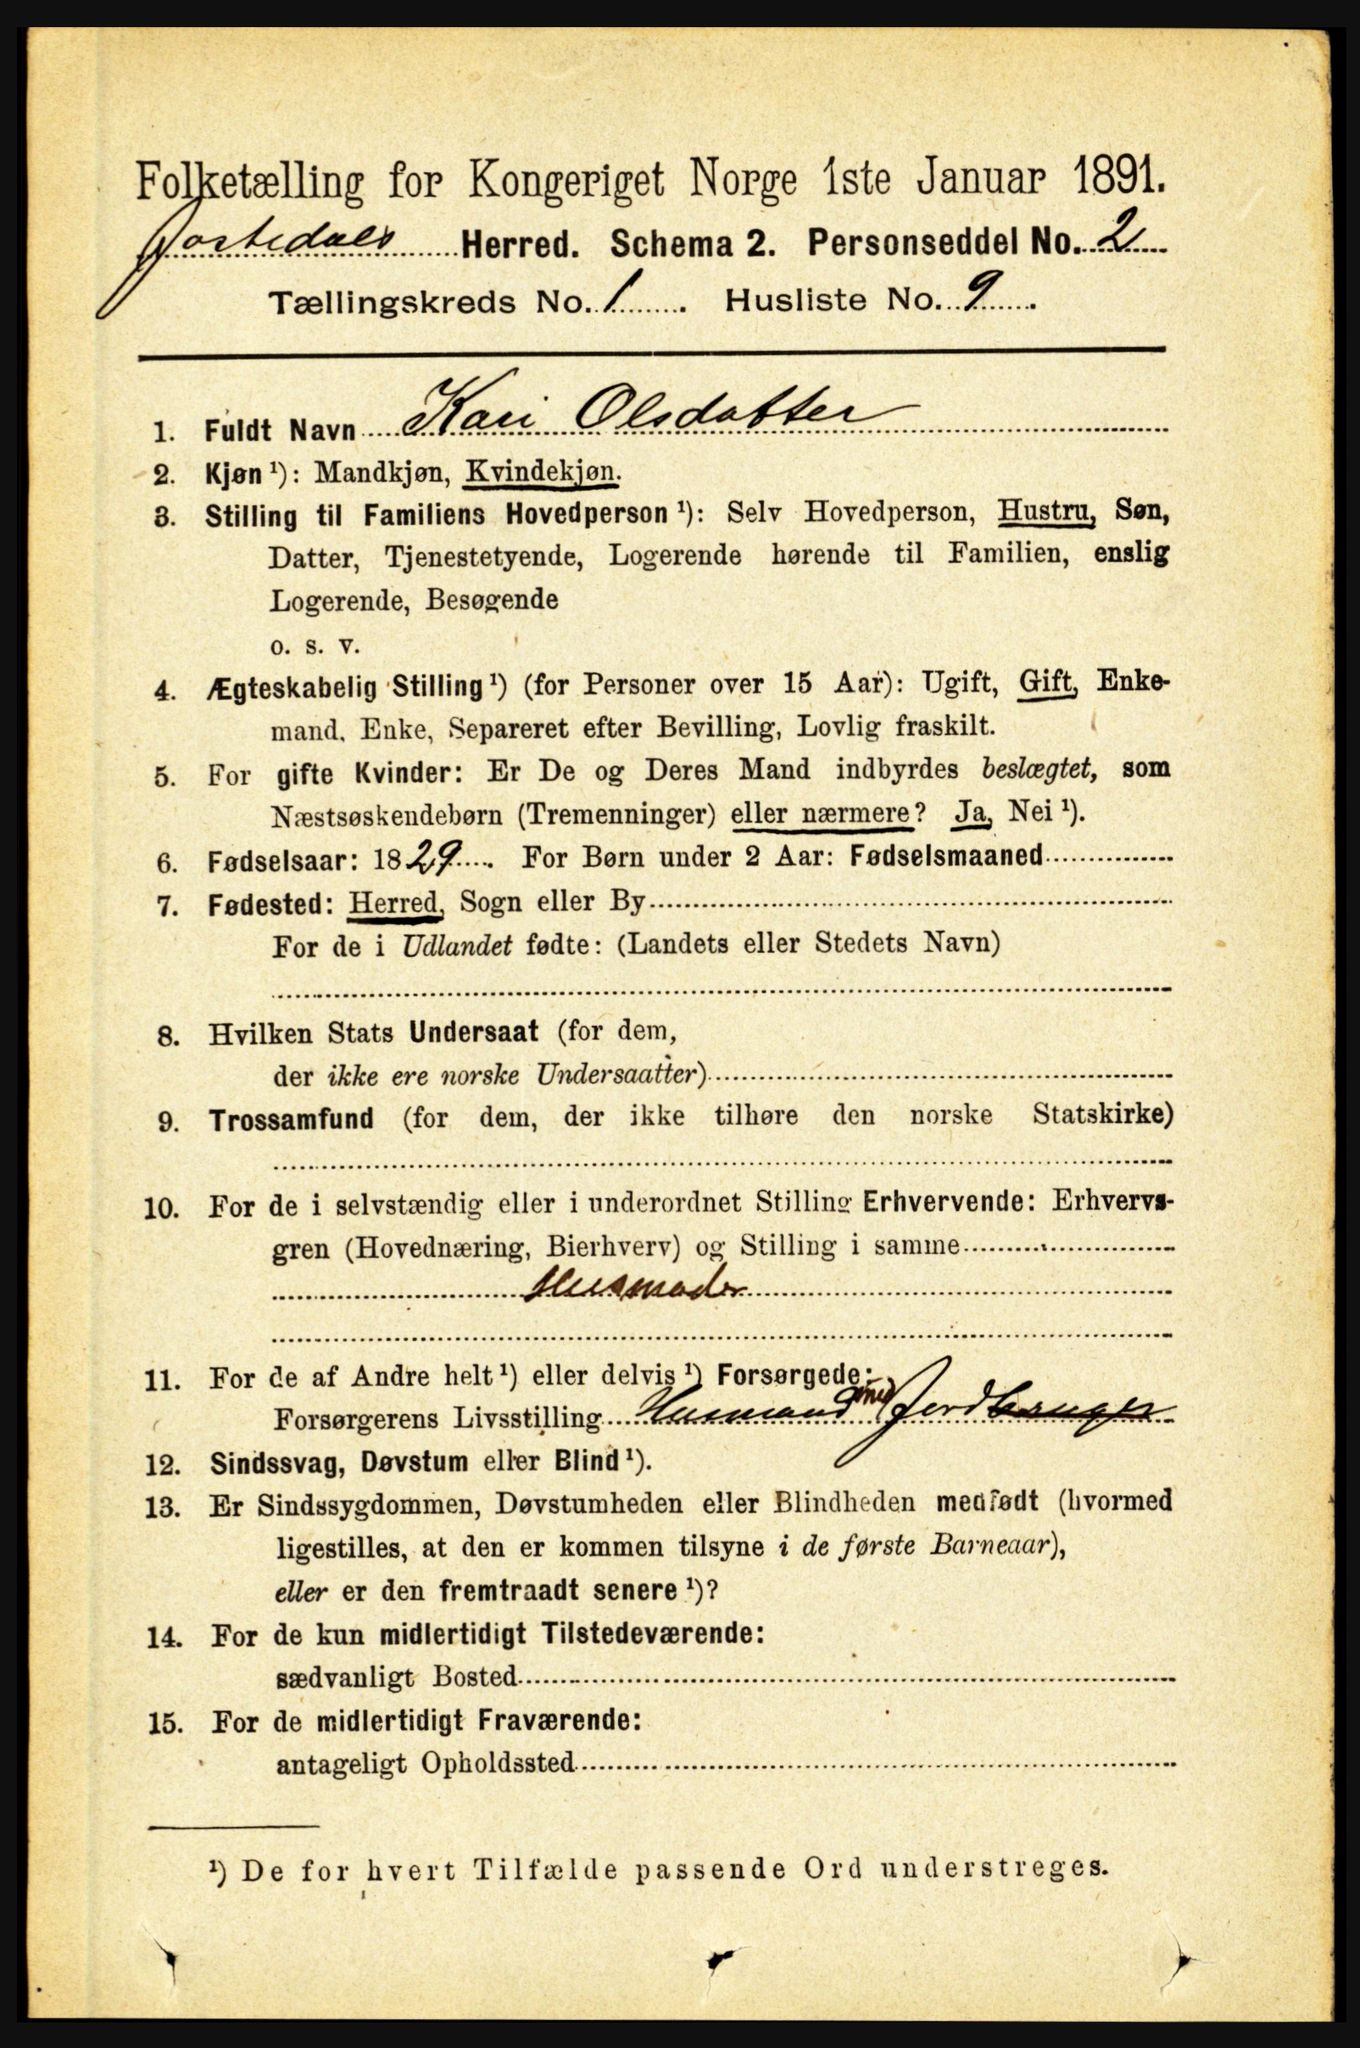 Folketælling for Kongeriget Norge 1ste Januar 1891.
Jostedals Herred. Schema 2. Personseddel No. 2
Tællingskreds No. 1. Husliste No. 9.
1. Fuldt Navn Kari Olsdatter
2. Kjøn¹): Mandkjøn, Kvindekjøn.
3. Stilling til Familiens Hovedperson¹): Selv Hovedperson, Hustru, Søn,
Datter, Tjenestetyende, Logerende hørende til Familien, enslig
Logerende, Besøgende
o. s. v.
4. Ægteskabelig Stilling¹) (for Personer over 15 Aar): Ugift, Gift, Enke-
mand, Enke, Separeret efter Bevilling, Lovlig fraskilt.
5. For gifte Kvinder: Er De og Deres Mand indbyrdes beslægtet, som
Næstsøskendebørn (Tremenninger) eller nærmere? Ja, Nei¹).
6. Fødselsaar: 1829. For Børn under 2 Aar: Fødselsmaaned
7. Fødested: Herred, Sogn eller By
For de i Udlandet fødte: (Landets eller Stedets Navn)
8. Hvilken Stats Undersaat (for dem,
der ikke ere norske Undersaatter)
9. Trossamfund (for dem, der ikke tilhøre den norske Statskirke)
10. For de i selvstændig eller i underordnet Stilling Erhvervende: Erhvervs-
gren (Hovednæring, Bierhverv) og Stilling i samme
Husmoder
11. For de af Andre helt¹) eller delvis¹) Forsørgede:
Forsørgerens Livsstilling Husmand med Jordbruger
12. Sindssvag, Døvstum eller Blind¹).
13. Er Sindssygdommen, Døvstumheden eller Blindheden medfødt (hvormed
ligestilles, at den er kommen tilsyne i de første Barneaar),
eller er den fremtraadt senere¹)?
14. For de kun midlertidigt Tilstedeværende:
sædvanligt Bosted
15. For de midlertidigt Fraværende:
antageligt Opholdssted
¹) De for hvert Tilfælde passende Ord understreges.